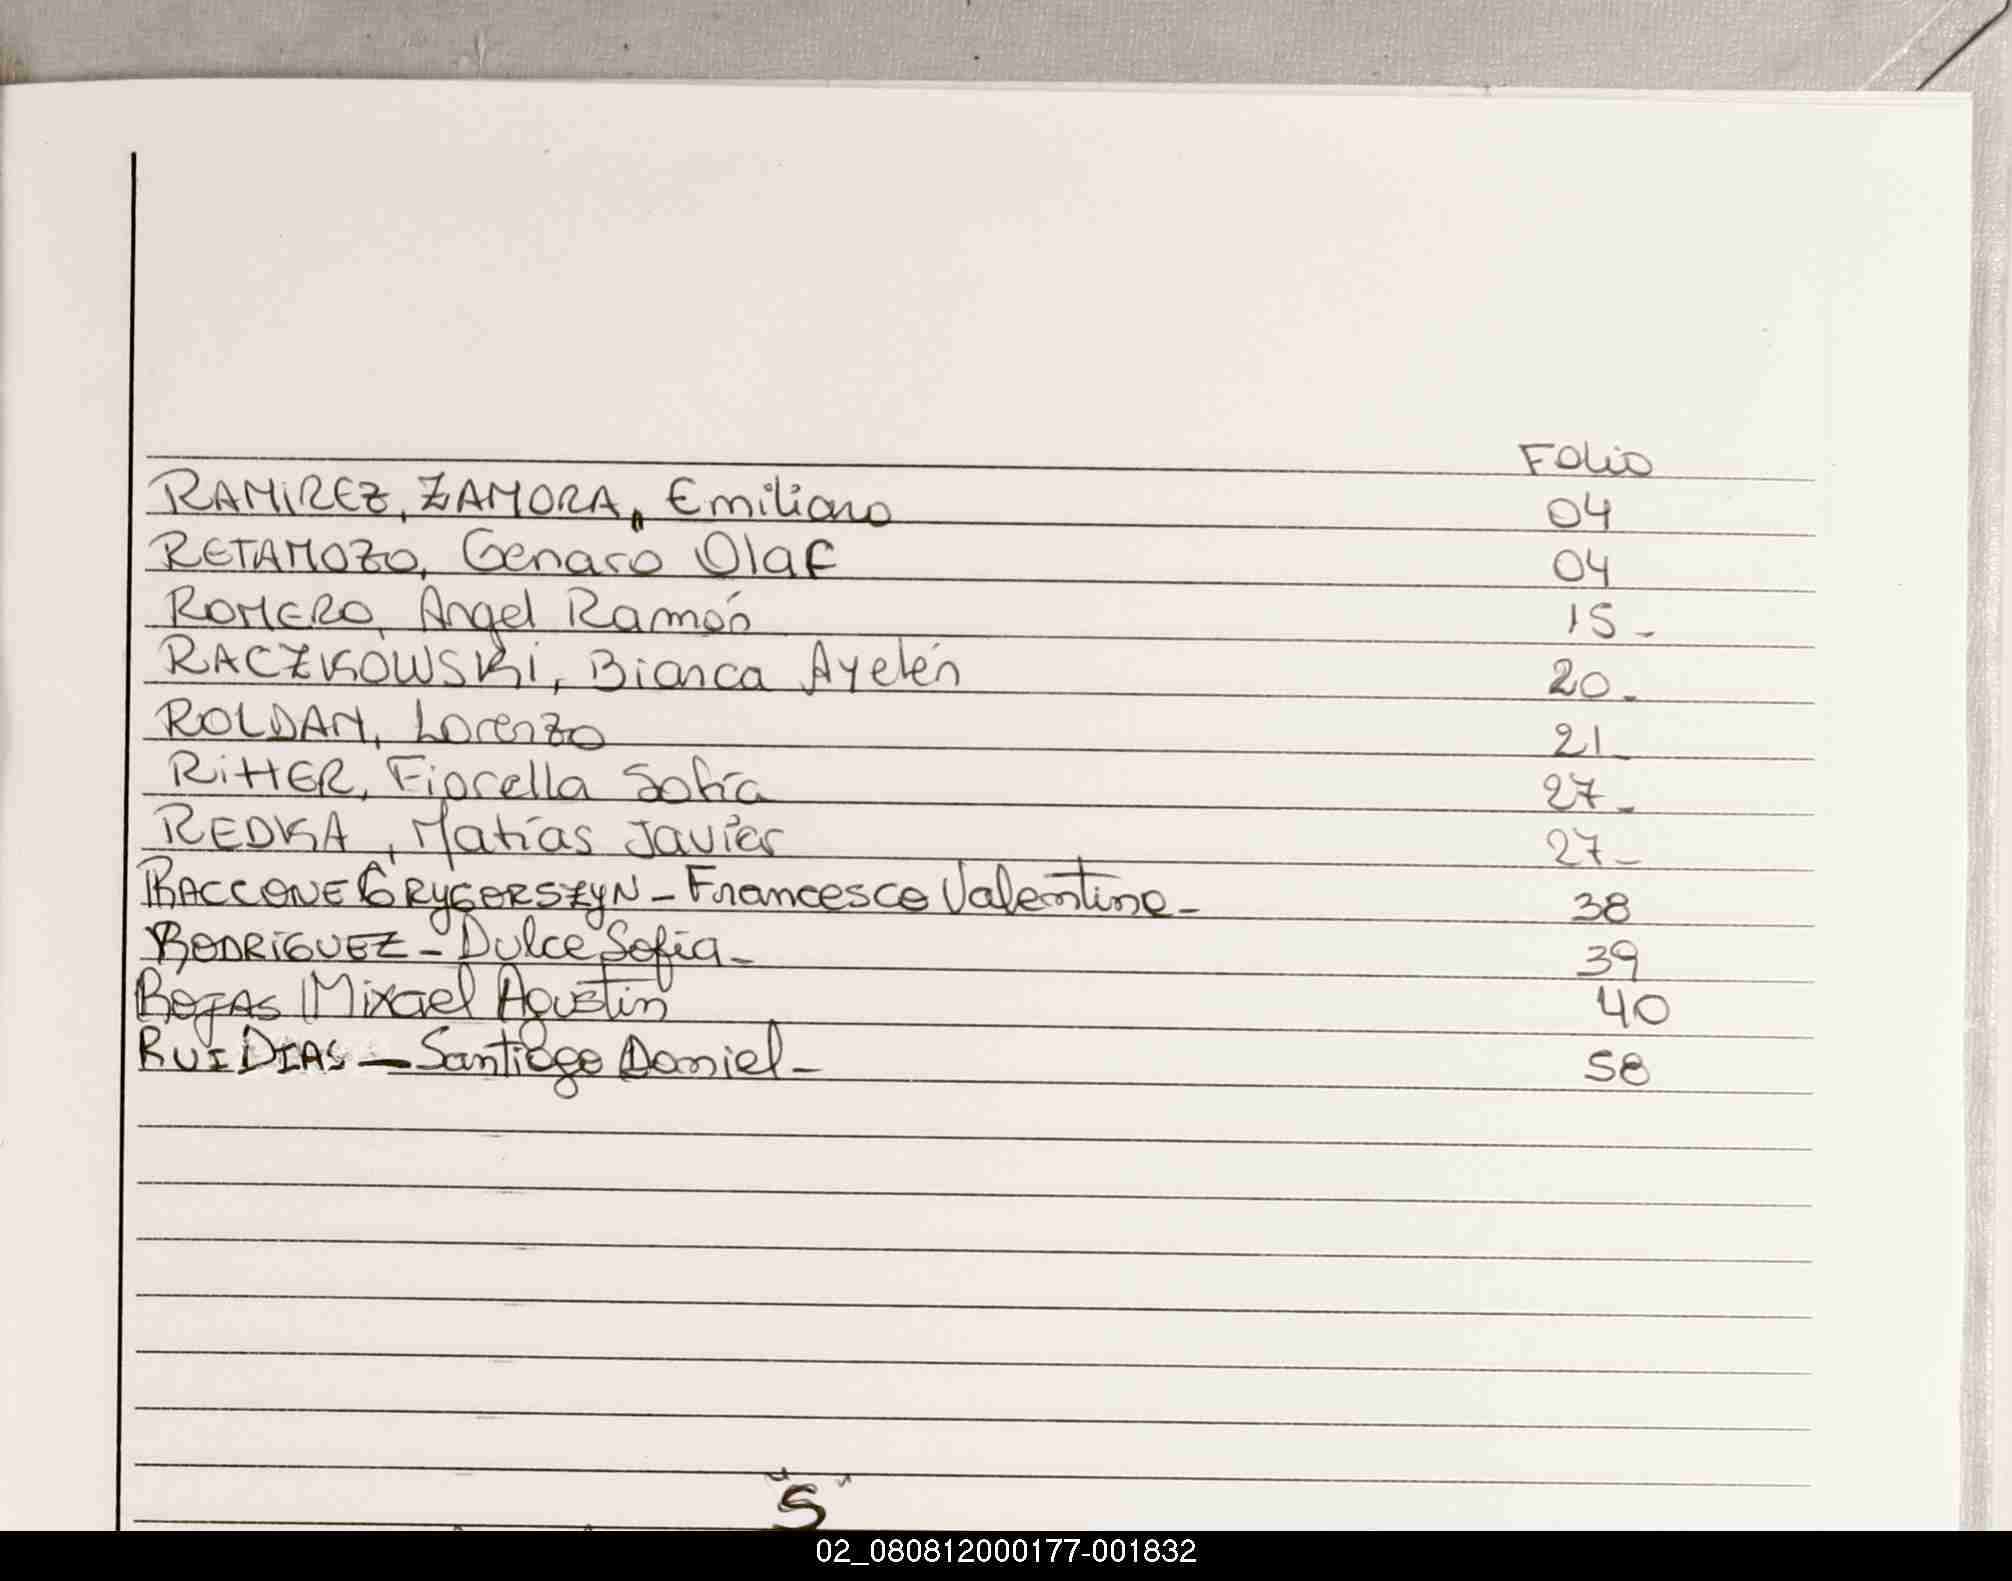 Folio
RAMIREZ, ZAMORA, Emiliano 04
RETAMOZO, Genaro Olaf 04
ROMERO, Angel Ramón 15-
RACZKOWSKI, Bianca Ayelén 20-
ROLDAN, Lorenzo 21-
RITTER, Fiorella Sofía 27-
REDKA, Matías Javier 27-
RACCONE GRYGORSZYN - Francesco Valentino - 38
RODRÍGUEZ - Dulce Sofía - 39
ROJAS Mixael Agustin 40
RUI DIAS - Santiago Daniel - 58
"S"
02_080812000177-001832